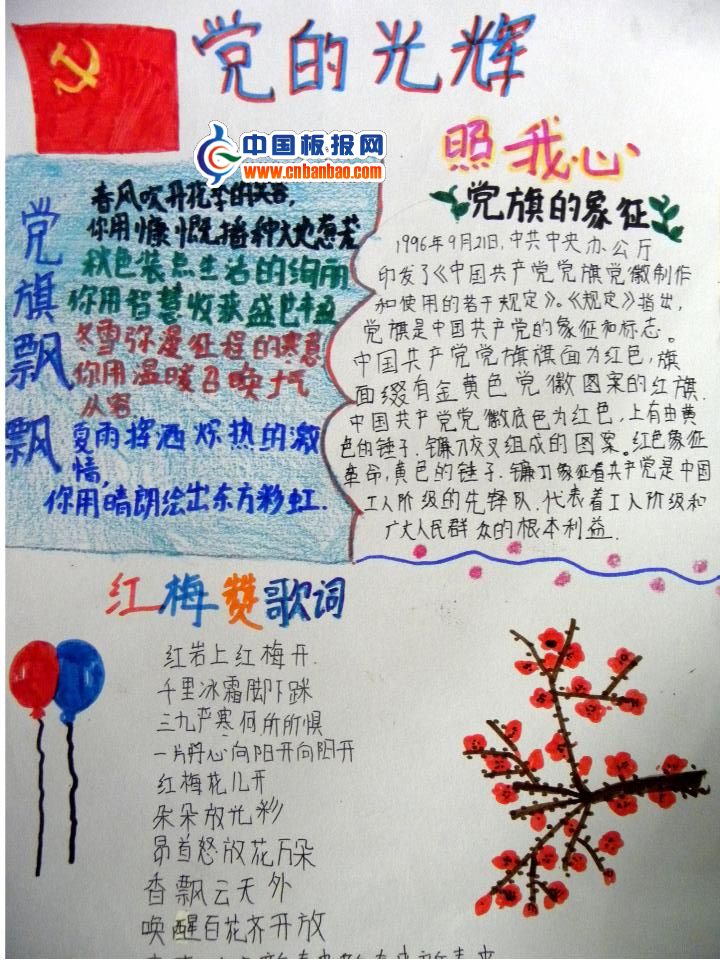 党的光辉
照我心
中国板报网
www.cnbanbao.com
党旗飘飘
春风吹开花季的笑容,
你用慷慨播种大地葱茏
秋色装点生活的绚丽
你用智慧收获盛世丰盈
冬雪弥漫征程的寒意
你用温暖召唤大气
从容
夏雨挥洒炽热的激
情,
你用晴朗绘出东方彩虹.
党旗的象征
1996年9月21日,中共中央办公厅
印发了《中国共产党党旗党徽制作
和使用的若干规定》。《规定》指出,
党旗是中国共产党的象征和标志。
中国共产党党旗旗面为红色,旗
面缀有金黄色党徽图案的红旗.
中国共产党党徽底色为红色,上有由黄
色的锤子、镰刀交叉组成的图案。红色象征
革命,黄色的锤子、镰刀象征着共产党是中国
工人阶级的先锋队.代表着工人阶级和
广大人民群众的根本利益.
红梅赞歌词
红岩上红梅开.
千里冰霜脚下踩
三九严寒何所所惧
一片丹心向阳开向阳开
红梅花儿开
朵朵放光彩
昂首怒放花万朵
香飘云天外
唤醒百花齐开放